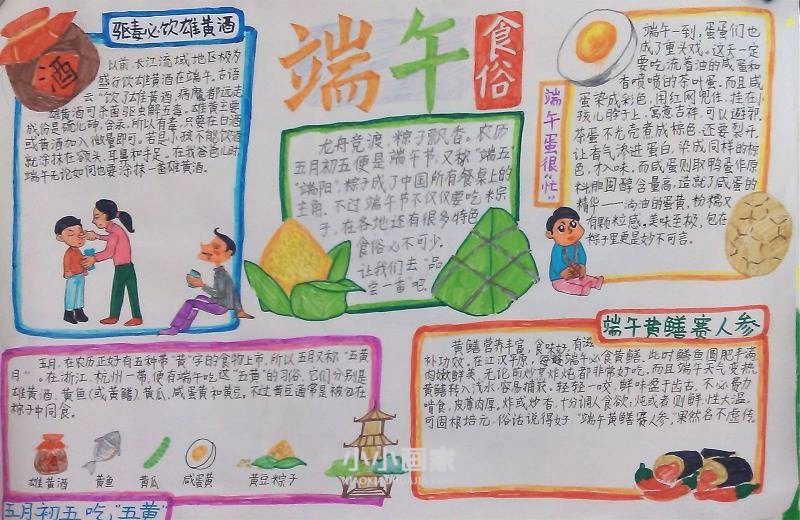 端午食俗
驱毒必饮雄黄酒
酒
以前,长江流域地区极为
盛行饮雄黄酒在端午。古语
云"饮了雄黄酒,病魔都远走
雄黄酒可杀菌驱虫解五毒。雄黄主要
成份是硫化砷,含汞,所以有毒,只要在白酒
或黄酒加入微量即可。若是小孩不能饮酒
就涂抹在额头、耳鼻和手足。在我爸爸儿时
端午无论如何也要涂抹一番雄黄酒。
龙舟竞渡,粽子飘香。农历
五月初五便是端午节,又称"端五"
"端阳"。粽子成了中国所有餐桌上的
主角。不过端午节不仅仅要吃粽
子,在各地还有很多特色
食俗必不可少。
让我们去"品
尝一番"吧
端午蛋很"忙"
端午一到,蛋蛋们也
成了重头戏。这天一定
要吃流着油的咸蛋和
香喷喷的茶叶蛋。而且咸
蛋染成彩色,用红网兜住,挂在小
孩儿脖子上,寓意吉祥,可以避邪
茶蛋不光壳煮成棕色,还要裂开,
让香气渗进蛋白,染成同样的棕
色,才入味。而咸蛋则取鸭蛋作原
料胆固醇含量高,造就了咸蛋的
精华——淌油的蛋黄,粉糯又
有颗粒感。美味至极,包在
粽子里更是妙不可言。
五月,在农历正好有五种带"黄"字的食物上市,所以五月又称"五黄
月"。在浙江、杭州一带,便有端午吃"五黄"的习俗,它们分别是
雄黄酒、黄鱼(或黄鳝)黄瓜、咸蛋黄和黄豆。不过黄豆通常是被包在
粽子中同食。
雄黄酒 黄鱼 黄瓜 咸蛋黄 黄豆粽子
五月初五吃"五黄"
端午黄鳝赛人参
黄鳝营养丰富,食味好,有滋
补功效。在江汉平原,每逢端午必食黄鳝,此时鳝鱼圆肥丰满
肉嫩鲜美,无论煎炒烹炸炖都非常好吃,而且端午天气变热,
黄鳝转入浅水,容易捕获。轻轻一咬,鲜味盛于齿古,不必费力
啃食,皮薄肉厚。炸或炒香,十分调人食欲,炖或煮则鲜,性大温,
可固根培元,俗话说得好"端午黄鳝赛人参",果然名不虚传。
小小画家
XIAOXIAOHUAJIA.COM